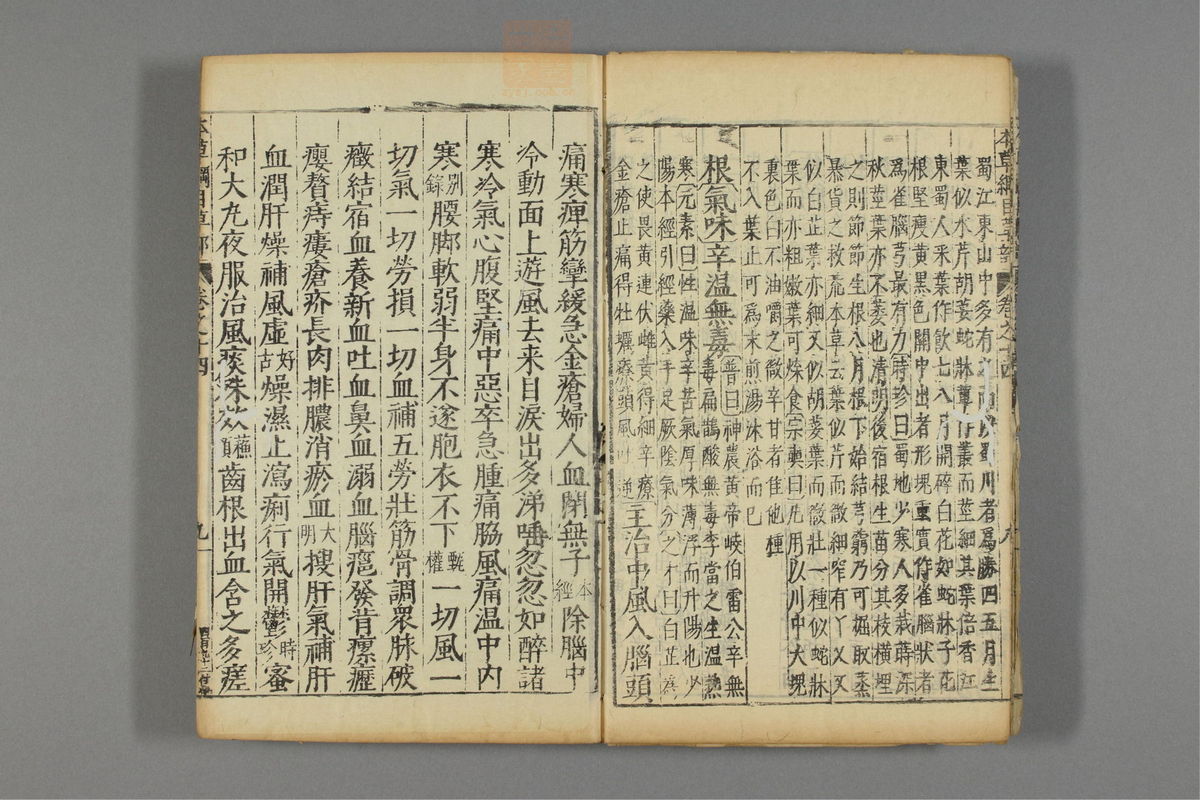 本草綱目草部 卷之十四 九
蜀江東山中多有之而以蜀川者爲勝四五月生
葉似水芹胡荽蛇牀輩作叢而莖細其葉倍香江
東蜀人采葉作飲七八月開碎白花如蛇牀子花
根堅瘦黄黑色關中出者形塊重實作雀腦狀者
爲雀腦芎最有力時珍曰蜀地少寒人多栽蒔深
秋莖葉亦不萎也清明後宿根生苗分其枝横埋
之則節節生根八月根下始結芎藭乃可掘取蒸
暴貨之救荒本草云葉似芹而微細窄有丫叉又
似白芷葉亦細又似胡荽葉而微壯一種似蛇牀
葉而亦粗嫩葉可煠食宗奭曰凡用以川中大塊
裏色白不油嚼之微辛甘者佳他種
不入藥止可爲末煎湯沐浴而已
根氣味辛温無毒普曰神農黄帝岐伯雷公辛無
毒扁鵲酸無毒李當之生温熟
寒元素曰性温味辛苦氣厚味薄浮而升陽也少
陽本經引經藥入手足厥陰氣分之才曰白芷爲
之使畏黄連伏雌黄得細辛療
金瘡止痛得牡蠣療頭風吐逆主治中風入腦頭
痛寒痺筋攣緩急金瘡婦人血閉無子本經除腦中
冷動面上遊風去来目淚出多涕唾忽忽如醉諸
寒冷氣心腹堅痛中惡卒急腫痛脇風痛温中内
寒别錄腰脚軟弱半身不遂胞衣不下甄權一切風一
切氣一切勞損一切血補五勞壯筋骨調衆脉破
癥結宿血養新血吐血鼻血溺血腦癰發背瘰癧
癭贅痔瘻瘡疥長肉排膿消瘀血大明搜肝氣補肝
血潤肝燥補風虛好古燥濕止瀉痢行氣開鬱時珍蜜
和大丸夜服治風痰殊效蘇頌齒根出血含之多瘥
本草綱目草部 卷之十四